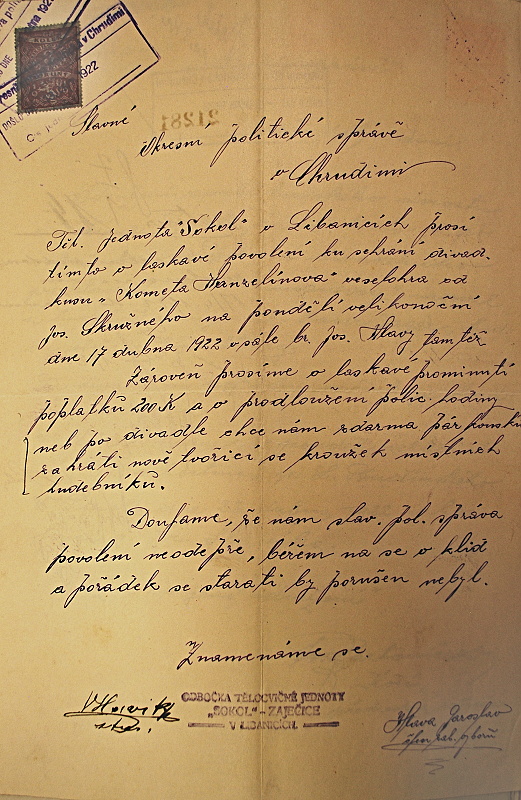 v Chrudimi
1922
21281
Slavné
Okresní politické správě
v Chrudimi
Těl. Jednota "Sokol" v Libanicích prosí
tímto o laskavé povolení ku sehrání divad.
kusu „Kometa Hanzelínova" veselohra od
Jos. Skružného na pondělí velikonoční
dne 17 dubna 1922 v sále br. Jos. Hlavy tamtéž
Zároveň prosíme o laskavé prominutí
poplatků 200 K a o prodloužení polic. hodiny
neb po divadle chce nám zdarma pár kousků
zahráti nově tvořící se kroužek místních
hudebníků.
Doufáme, že nám slav. pol. správa
povolení neodepře, béřem na se o klid
a pořádek se starati by porušen nebyl.
Znamenáme se.
ODBOČKA TĚLOCVIČNÉ JEDNOTY
„SOKOL" - ZAJEČICE
V LIBANICÍCH.
Hlava Jaroslav
člen zab. výboru